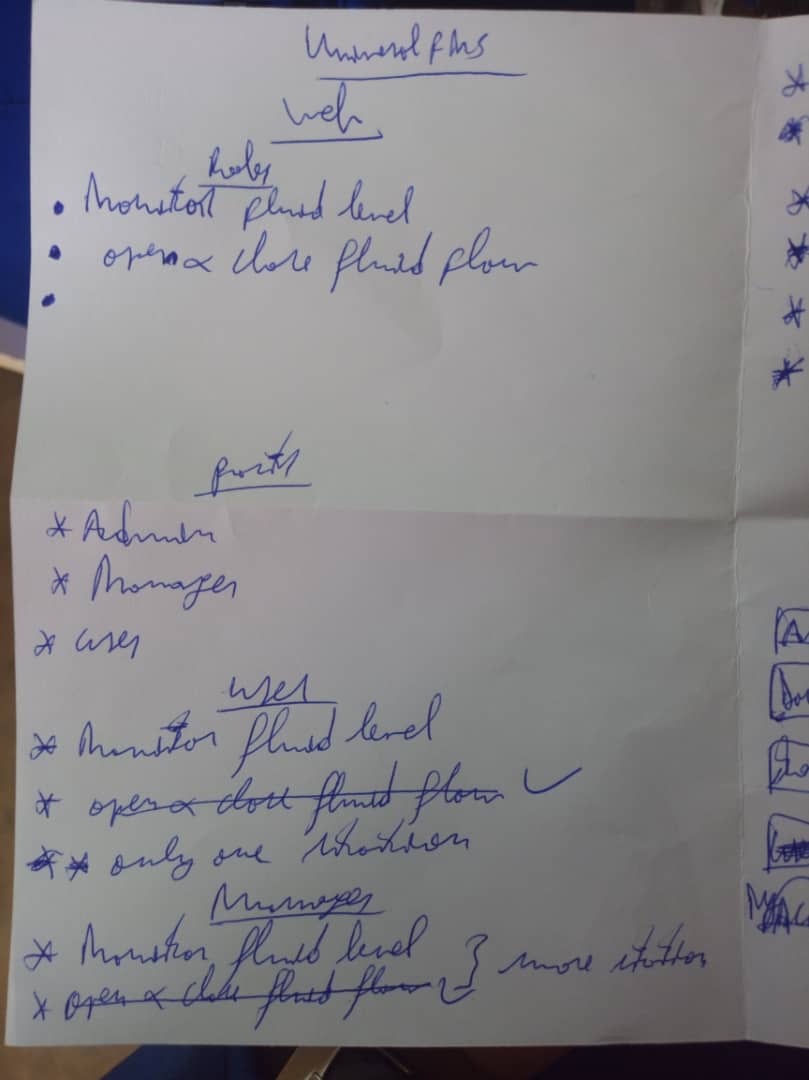 FMS
Web
Rules
• Monitor fluid level
• open & close fluid flow
•
* Admin
* Manager
* user
user
* Monitor fluid level
* open & close fluid flow ✓
* * only one station
Manager
* Monitor fluid level
* open & close fluid flow } more station